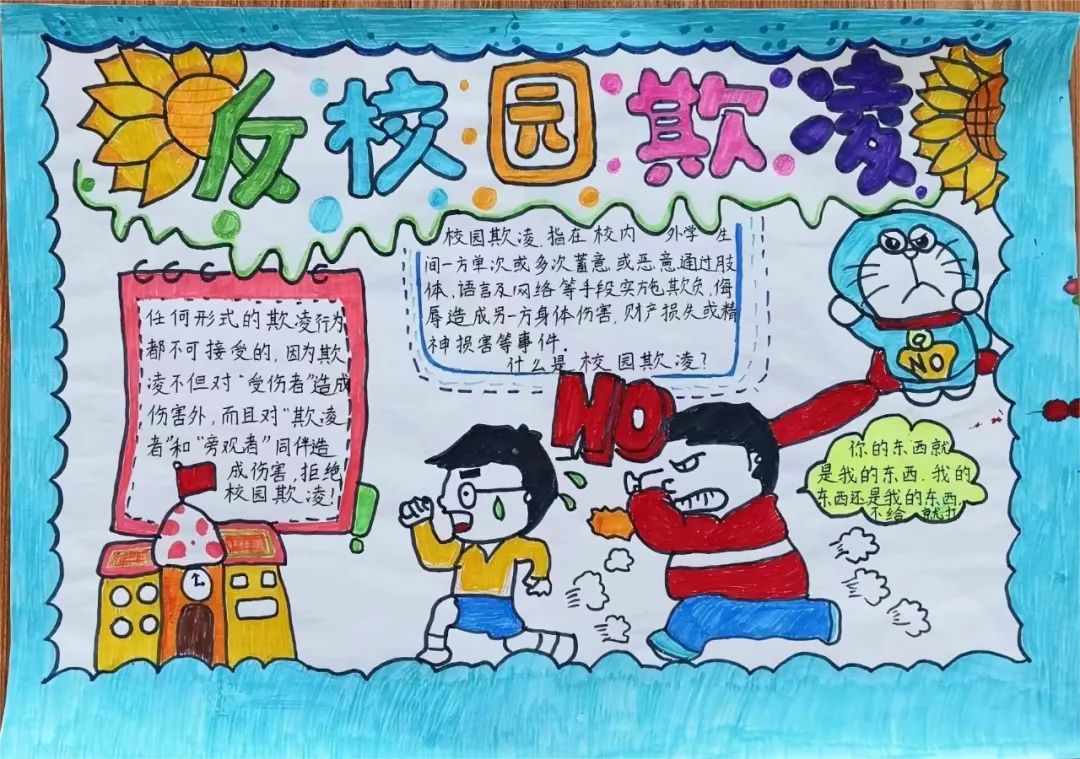 反校园欺凌
校园欺凌,指在校内 外学生
间一方单次或多次蓄意或恶意通过肢
体,语言及网络等手段实施欺负,侮
辱造成另一方身体伤害,财产损失或精
神损害等事件.
什么是校园欺凌?
任何形式的欺凌行为
都不可接受的,因为欺
凌不但对“受伤者”造成
伤害外,而且对“欺凌
者”和“旁观者”同伴造
成伤害,拒绝
校园欺凌!
NO
NO
你的东西就
是我的东西.我的
东西还是我的东西,
不给 就打